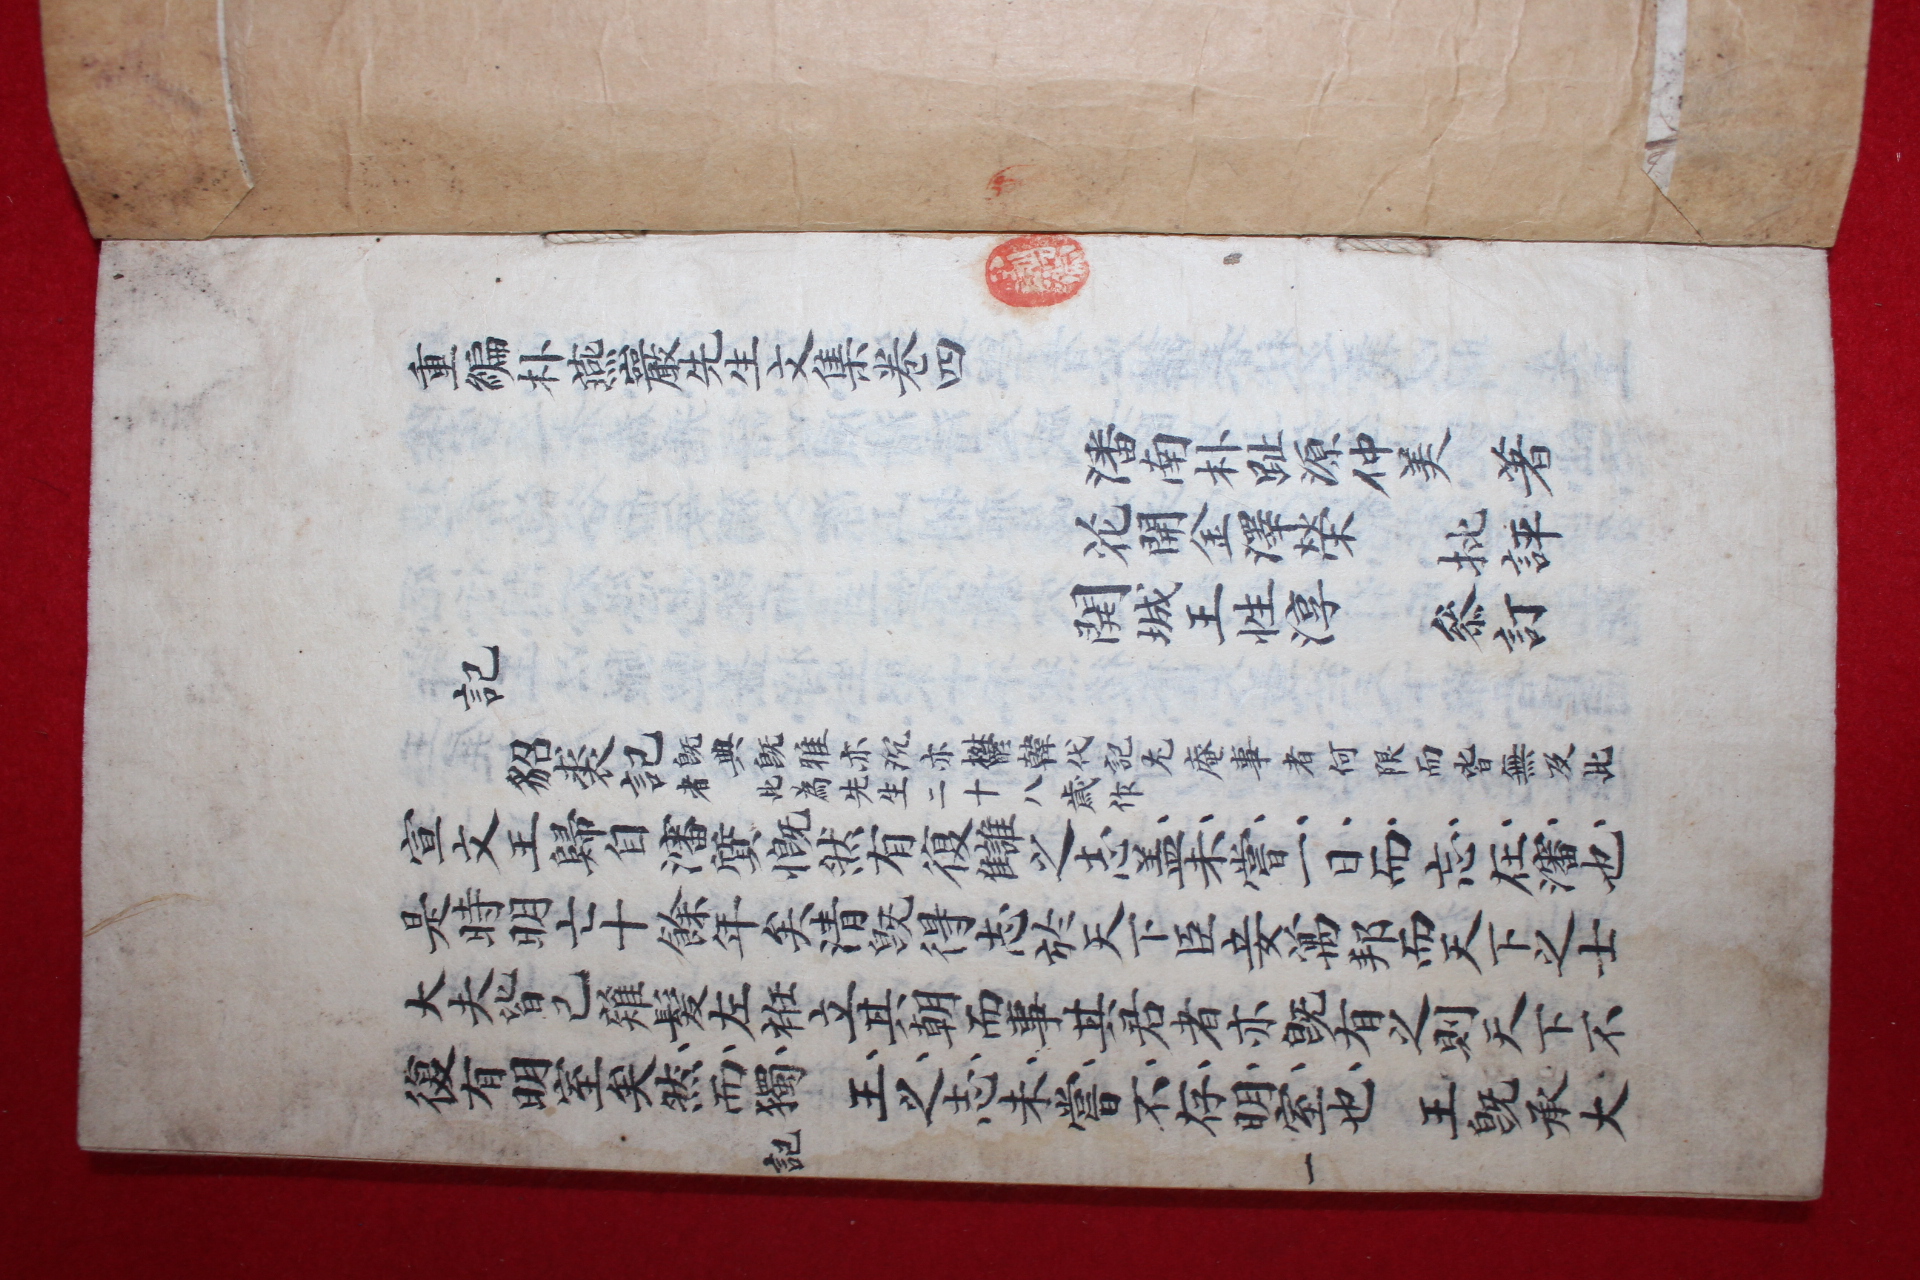 重編朴燕巖先生文集卷四
潘南朴趾源仲美 著
花開金澤榮 批評
開城王性淳 叅訂
記
貂裘記
旣典旣雅亦沉亦欝韓代記尤庵事者何限而皆無及此
者 此為先生二十八歲作
宣文王歸自瀋質慨然有復讎之志盖未嘗一日而忘在瀋也
是時明亡十餘年矣清旣得志於天下臣妾萬邦而天下之士
大夫皆已薙髮左袵立其朝而事其君者亦旣有之則天下不
復有明室矣然而獨 王之志未嘗不存明室也 王旣承大
記
一